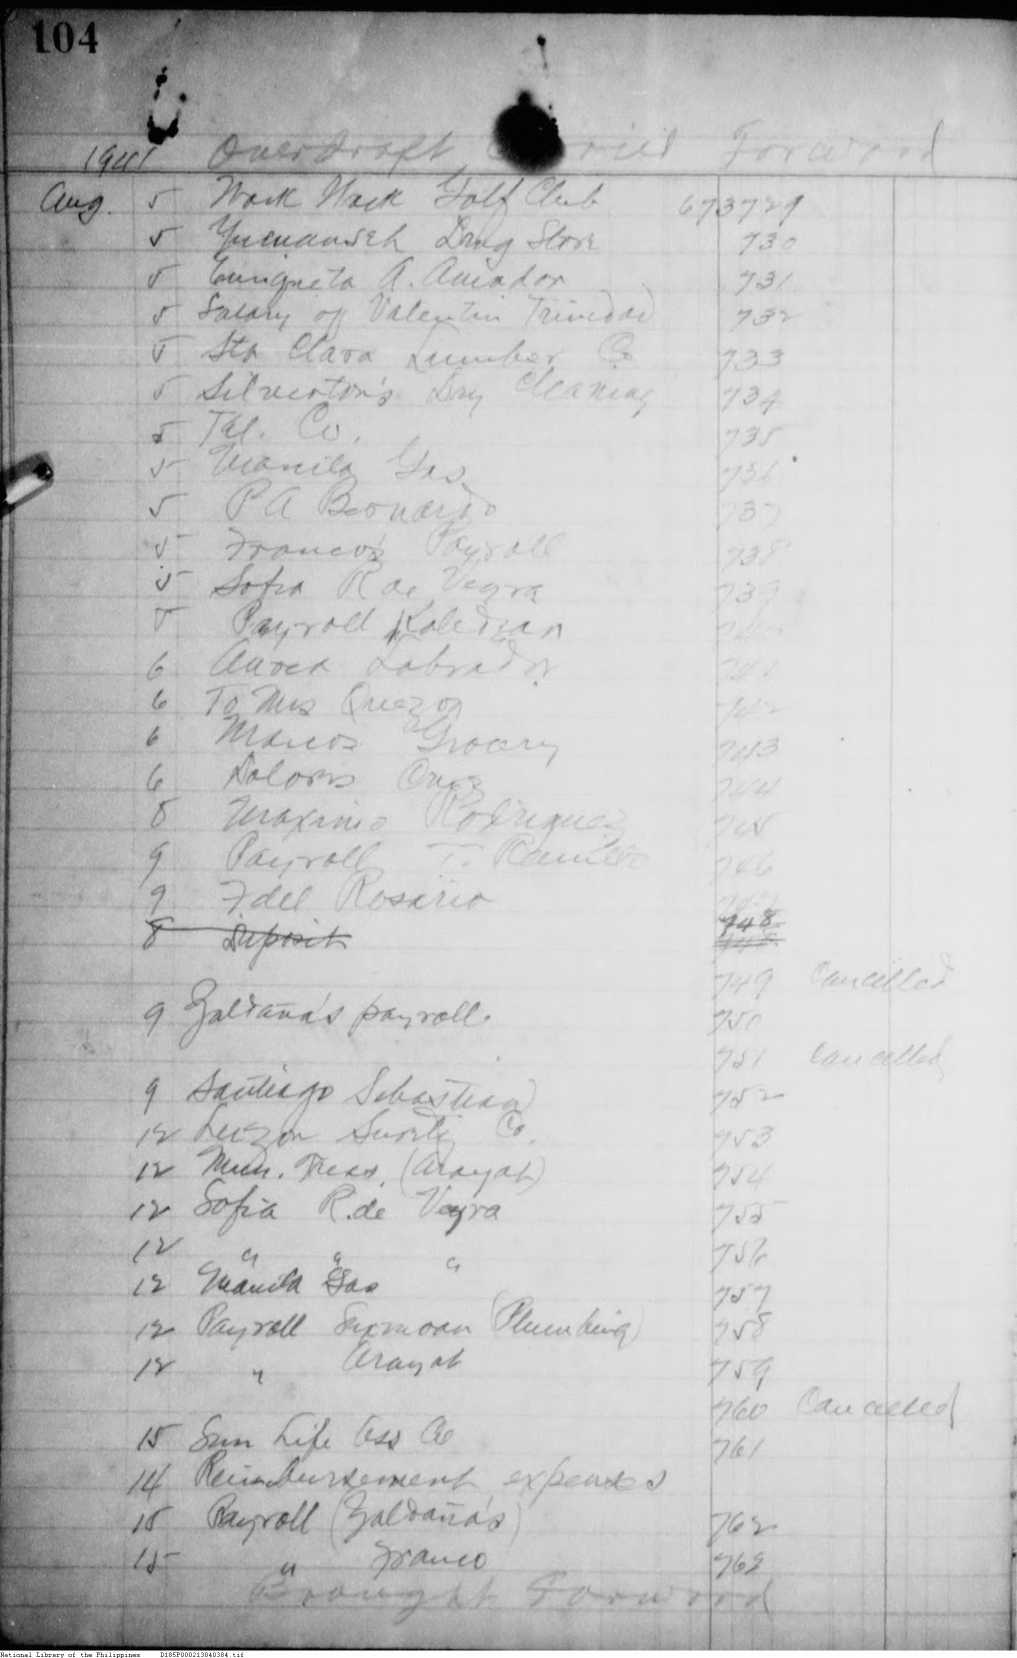 104
1941 Overdraft Carried Forward
Aug. 5 Wack Wack Golf Club 673729
5 Drug Store 730
5 Enriqueta A. Amador 731
5 Salary of Valentin Trinidad 732
5 Sta Clara Lumber Co 733
5 Silverton's Dry Cleaning 734
5 Tel. Co. 735
5 Manila Gas 736
5 P A Beonardo 737
5 Franco's Payroll 738
5 Sofia R de Veyra 739
5 Payroll
6 Aurea Labrador
6 To Mrs Quezon 742
6 Marcos Grocery 743
6 Dolores 744
8 Maximo Rodriguez 745
9 Payroll T. Ramitro 746
9 F del Rosario
8 Deposit 748
749 Cancelled
9 Zaldaña's payroll. 750
751 Cancelled
9 Santiago Sebastian 752
12 Luzon Surety Co. 753
12 Mun. Treas. (Arayat) 754
12 Sofia R. de Veyra 755
12 " " " 756
12 Manila Gas 757
12 Payroll Sexmoan (Plumbing) 758
12 " Arayat 759
760 Cancelled
15 Sun Life Ass Co 761
14 Reimbursement expenses
15 Payroll (Zaldaña's) 762
15 " Franco 763
Brought Forward
National Library of the Philippines D185P000213040384.tif